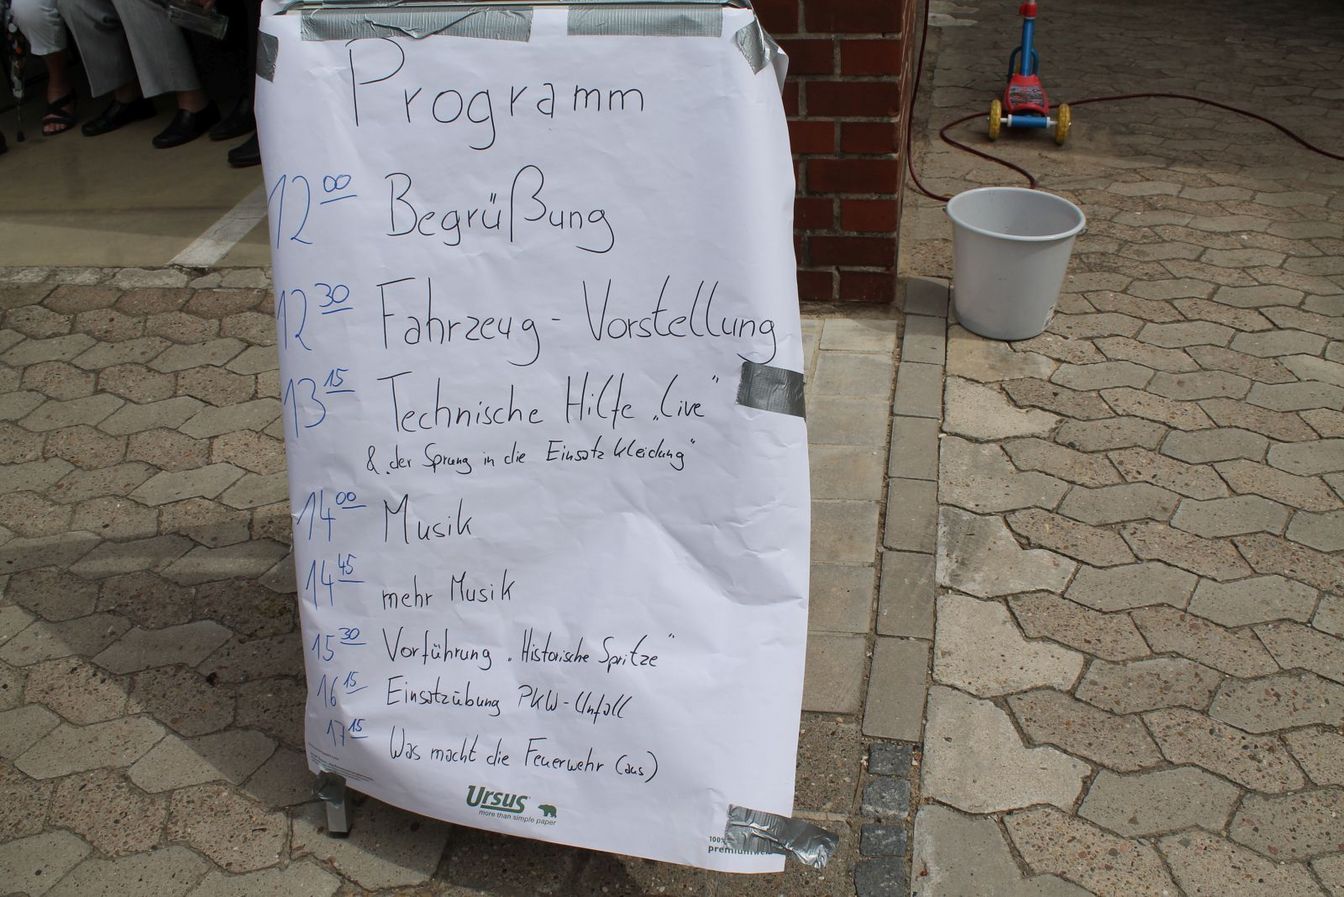 Programm
12 00 Begrüßung
12 30 Fahrzeug - Vorstellung
13 15 Technische Hilfe „live“
& „der Sprung in die Einsatzkleidung“
14 00 Musik
14 45 mehr Musik
15 30 Vorführung „Historische Spritze“
16 15 Einsatzübung PKW-Unfall
17 15 Was macht die Feuerwehr (aus)
Ursus
more than simple paper
100%